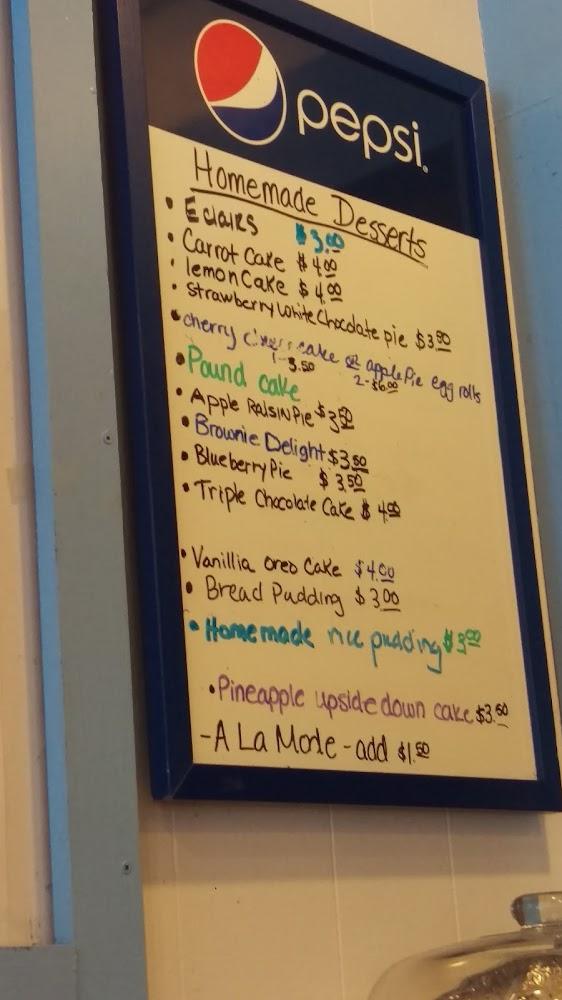 pepsi.
Homemade Desserts
• Eclairs $3.00
• Carrot Cake $4.00
• lemon Cake $4.00
• Strawberry White Chocolate pie $3.50
• cherry cheesecake or apple Pie egg rolls
1-3.50 2-$6.00
• Pound cake
• Apple Raisin Pie $3.50
• Brownie Delight $3.50
• Blueberry Pie $3.50
• Triple Chocolate Cake $4.00
• Vanillia oreo Cake $4.00
• Bread Pudding $3.00
• Homemade rice pudding $3.00
• Pineapple upside down cake $3.50
-A La Mode - add $1.50